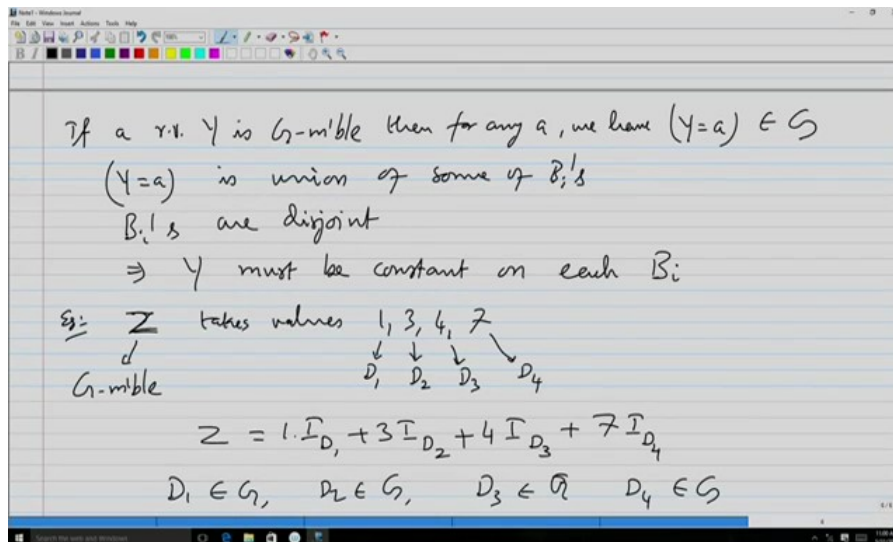 Note1 - Windows Journal
File Edit View Insert Actions Tools Help
B I
If a r.v. Y is G-m'ble then for any a, we have (Y=a) ∈ G
(Y=a) is union of some of Bi's
Bi's are disjoint
⇒ Y must be constant on each Bi
Eg:- Z takes values 1, 3, 4, 7
↓ ↓ ↓ ↓ ↘
G-m'ble D1 D2 D3 D4
Z = 1. I_D1 + 3 I_D2 + 4 I_D3 + 7 I_D4
D1 ∈ G, D2 ∈ G, D3 ∈ G D4 ∈ G
Search the web and Windows